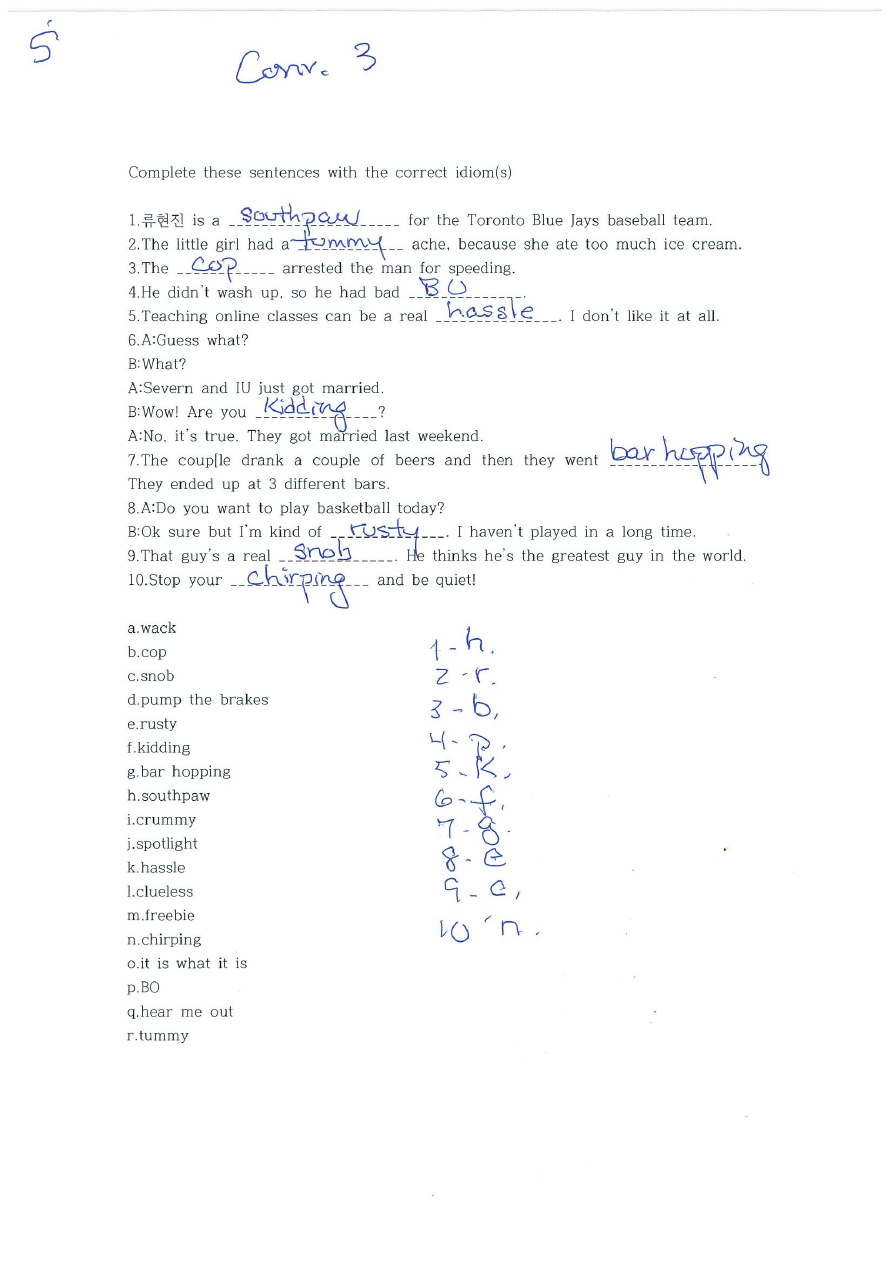 5
Conv. 3
Complete these sentences with the correct idiom(s)
1.류현진 is a southpaw for the Toronto Blue Jays baseball team.
2.The little girl had a tummy ache, because she ate too much ice cream.
3.The cop arrested the man for speeding.
4.He didn't wash up, so he had bad BO.
5.Teaching online classes can be a real hassle. I don't like it at all.
6.A:Guess what?
B:What?
A:Severn and IU just got married.
B:Wow! Are you kidding?
A:No, it's true. They got married last weekend.
7.The coup[le drank a couple of beers and then they went bar hopping
They ended up at 3 different bars.
8.A:Do you want to play basketball today?
B:Ok sure but I'm kind of rusty. I haven't played in a long time.
9.That guy's a real snob. He thinks he's the greatest guy in the world.
10.Stop your chirping and be quiet!
a.wack
b.cop
c.snob
d.pump the brakes
e.rusty
f.kidding
g.bar hopping
h.southpaw
i.crummy
j.spotlight
k.hassle
l.clueless
m.freebie
n.chirping
o.it is what it is
p.BO
q.hear me out
r.tummy
1-h.
2-r.
3-b,
4-p.
5-k,
6-f,
7-g.
8-e
9-c,
10-n.